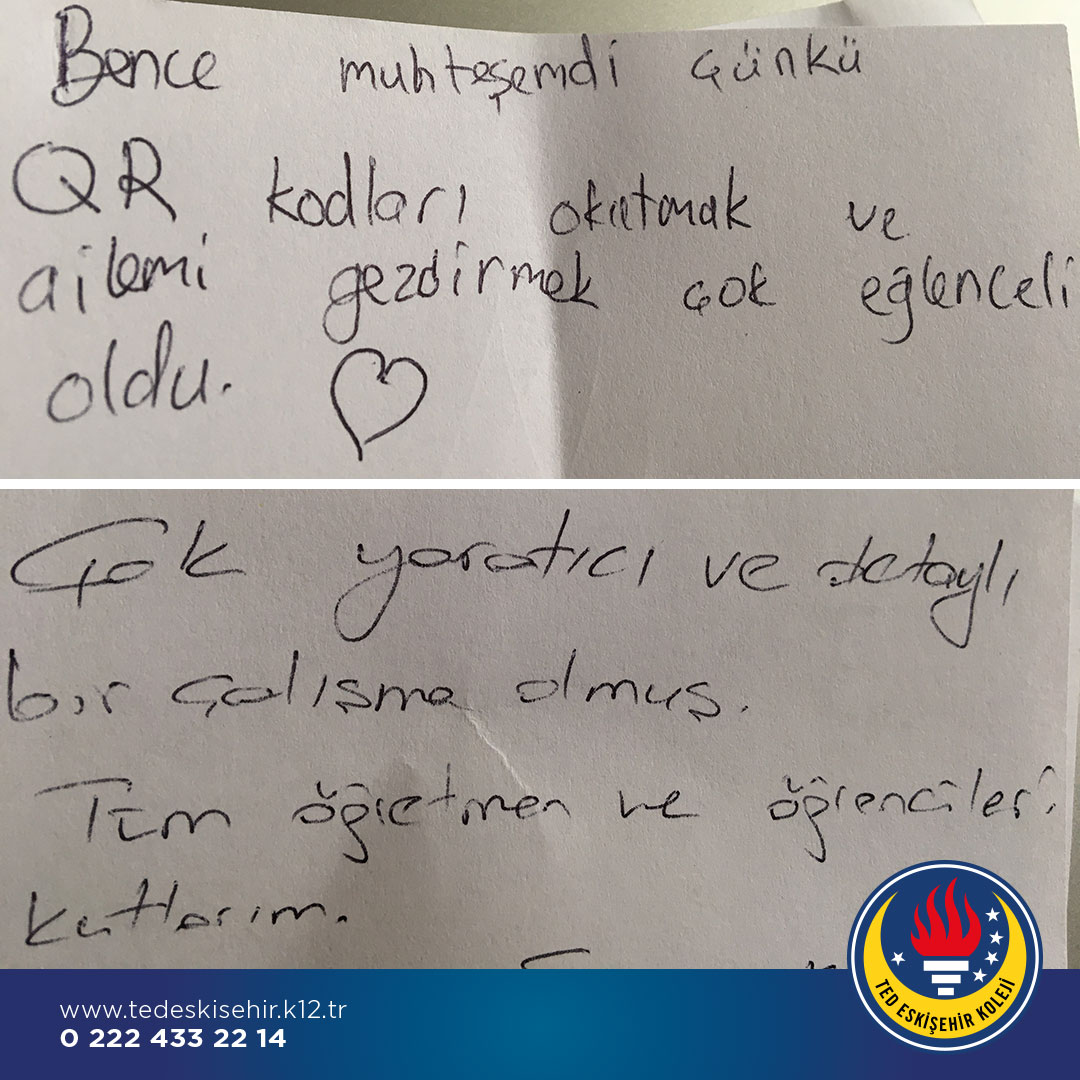 Bence muhteşemdi çünkü
QR kodları okutmak ve
ailemi gezdirmek çok eğlenceli
oldu.
Çok yaratıcı ve detaylı
bir çalışma olmuş.
Tüm öğretmen ve öğrencileri
kutlarım.
TED ESKİŞEHİR KOLEJİ
www.tedeskisehir.k12.tr
0 222 433 22 14